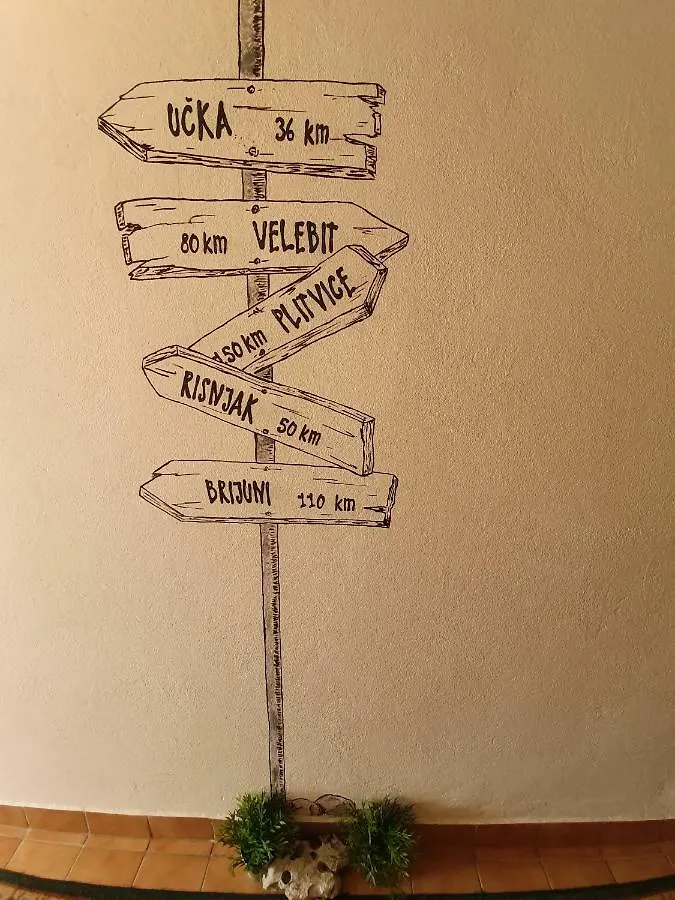 UČKA 36 km
80 km VELEBIT
150 km PLITVICE
RISNJAK 50 km
BRIJUNI 110 km